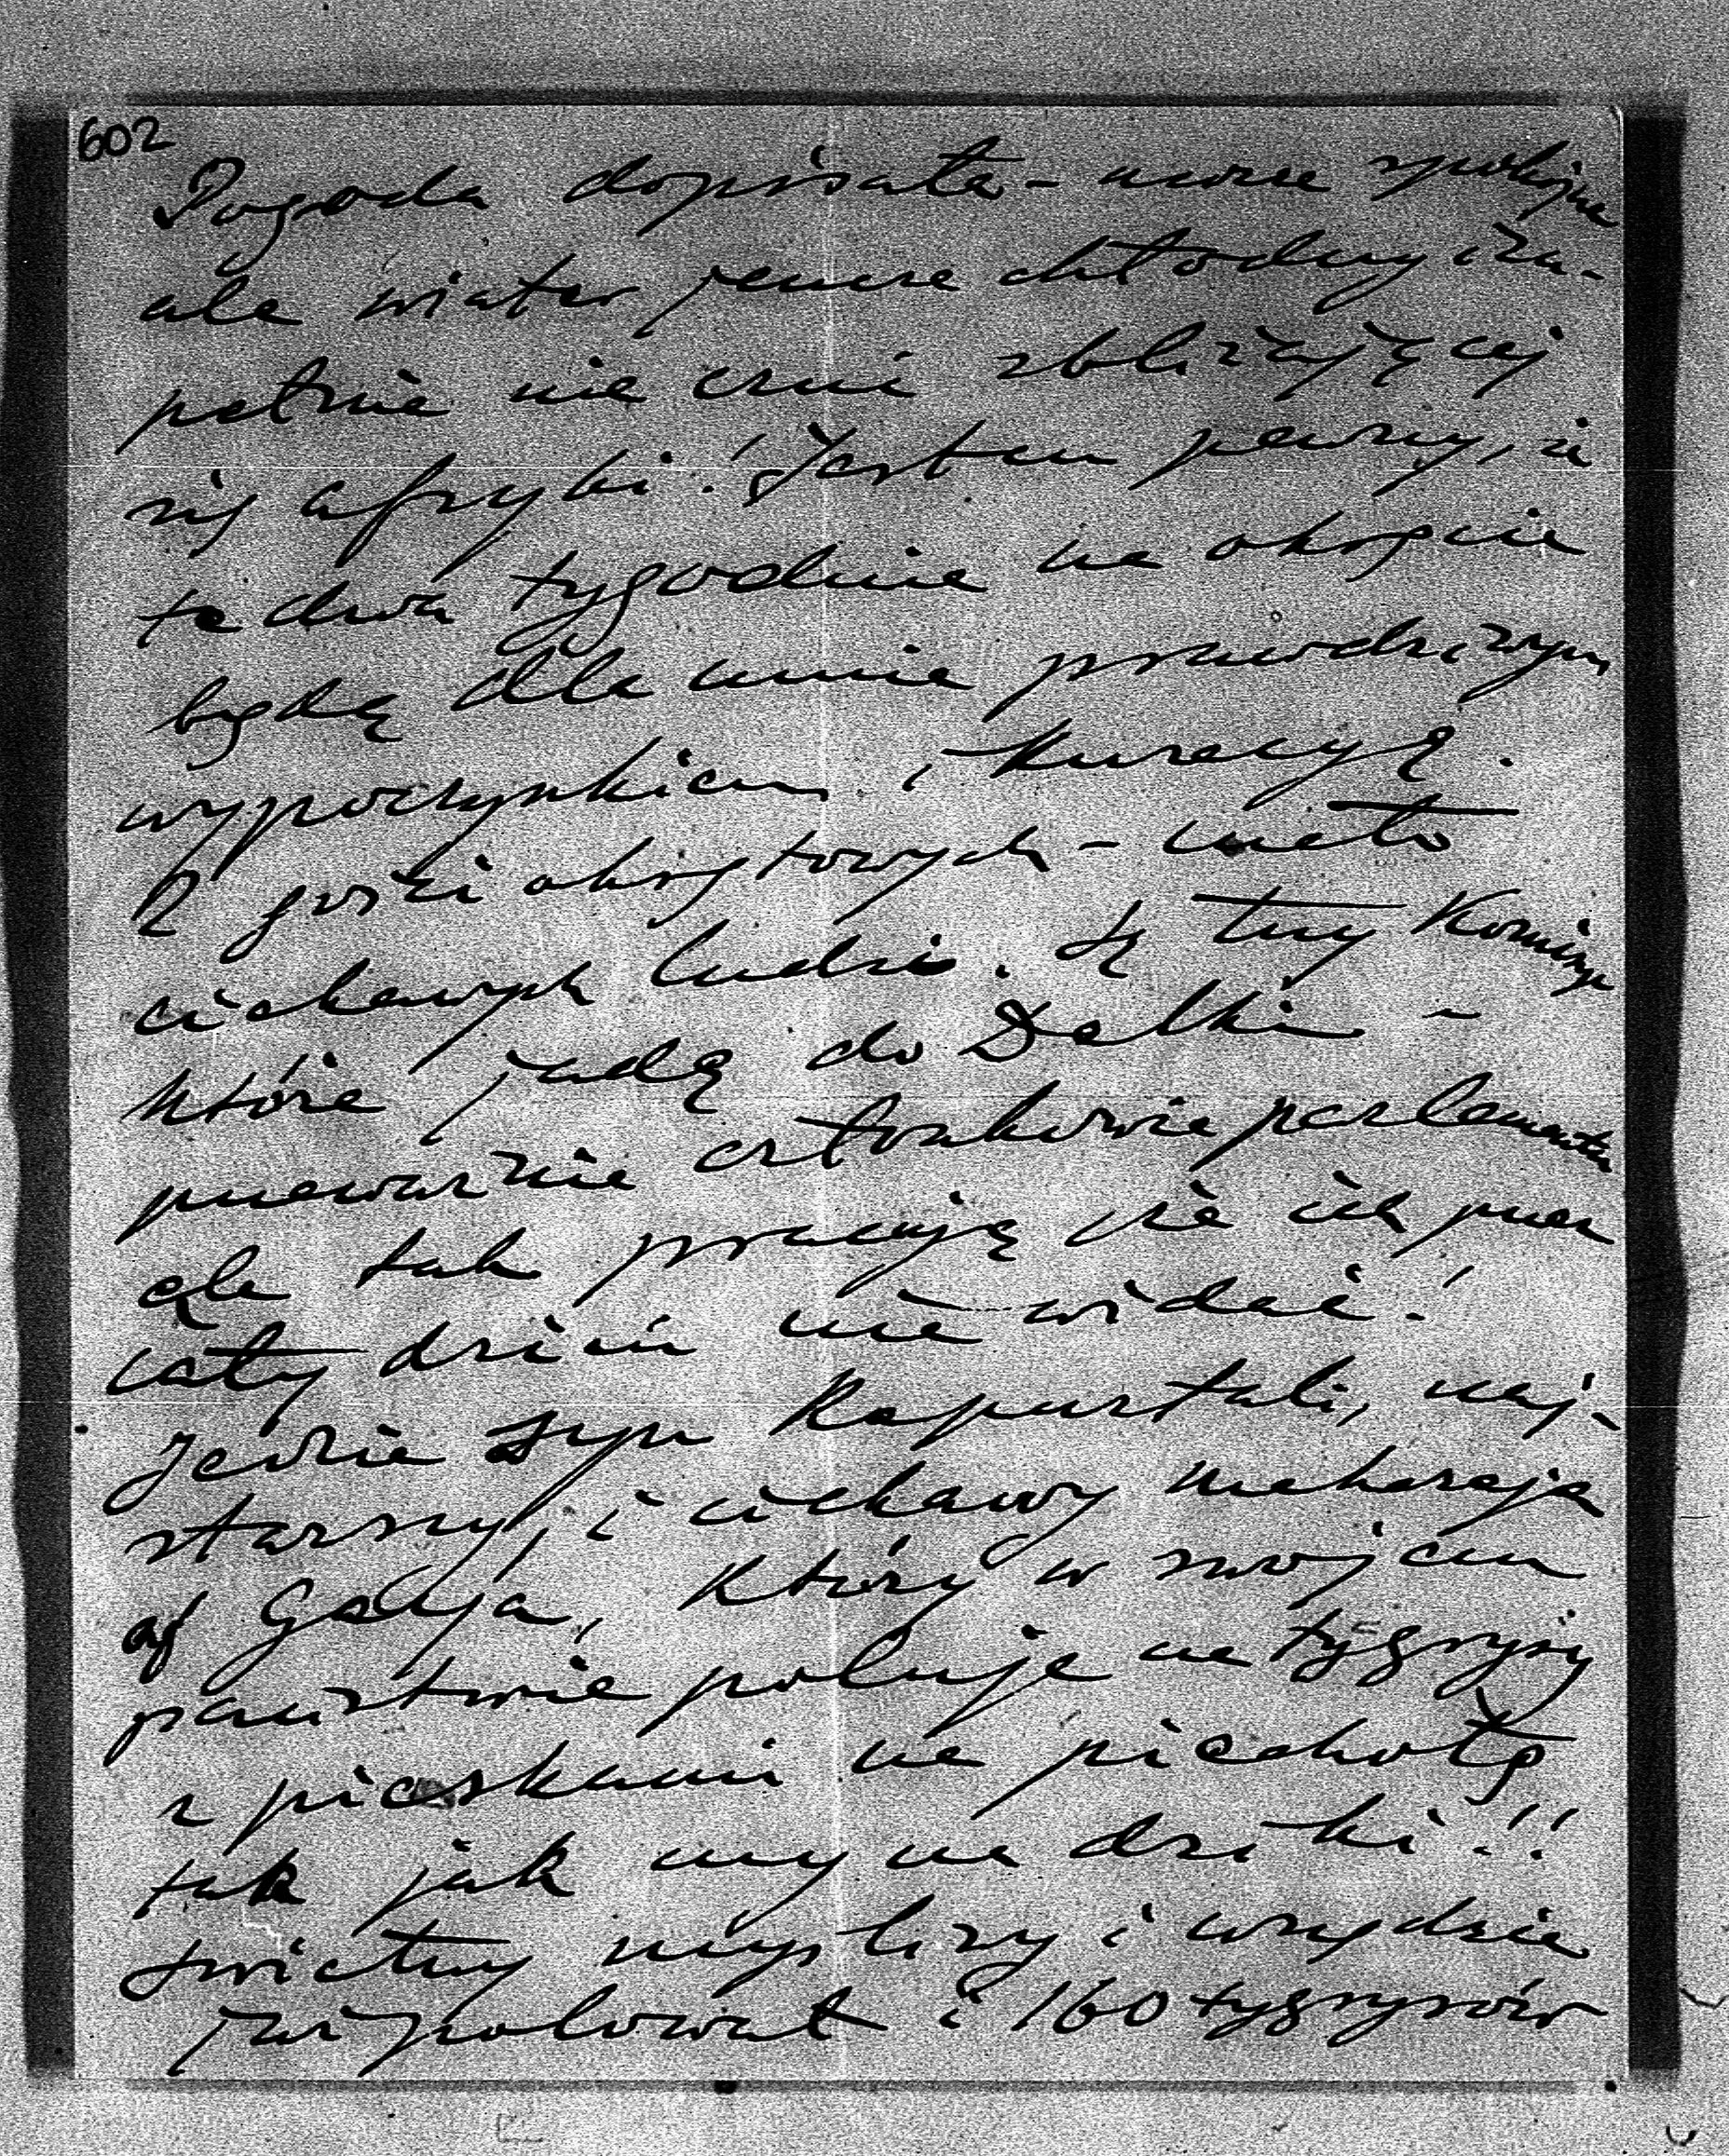 602
Pogoda dopisała - morze spokojne
ale wiatr jeszcze chłodny i zu-
pełnie nie czuć zbliżającej
się afryki! Jestem pewny, iż
te dwa tygodnie na okręcie
będą dla mnie prawdziwym
wypoczynkiem i kuracyą.
Z gości okrętowych - mało
ciekawych ludzi. Są trzy Komisye
które jadą do Delhi -
przeważnie członkowie parlamentu
ale tak pracują że ich przez
cały dzień nie widać!
Jedzie syn Kapurtali, naj-
starszy, i ciekawy maharaja
of Gaya, który w swojem
państwie poluje na tygrysy
z pieskami na piechotę
tak jak my na dziki!!
świetny myśliwy i wszędzie
już polował i 160 tygrysów